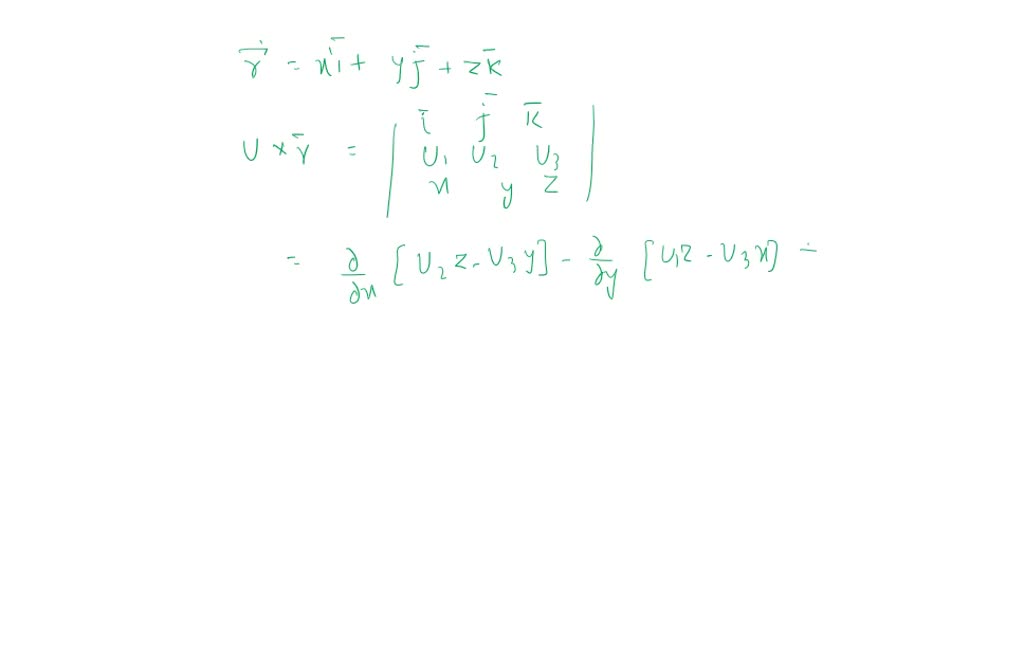 r⃗ = xi̅ + yj̅ + zk̅
i̅ j̅ k̅
U × r̅ = | U₁ U₂ U₃ |
x y z
= ∂/∂x [U₂z - U₃y] - ∂/∂y [U₁z - U₃x] +